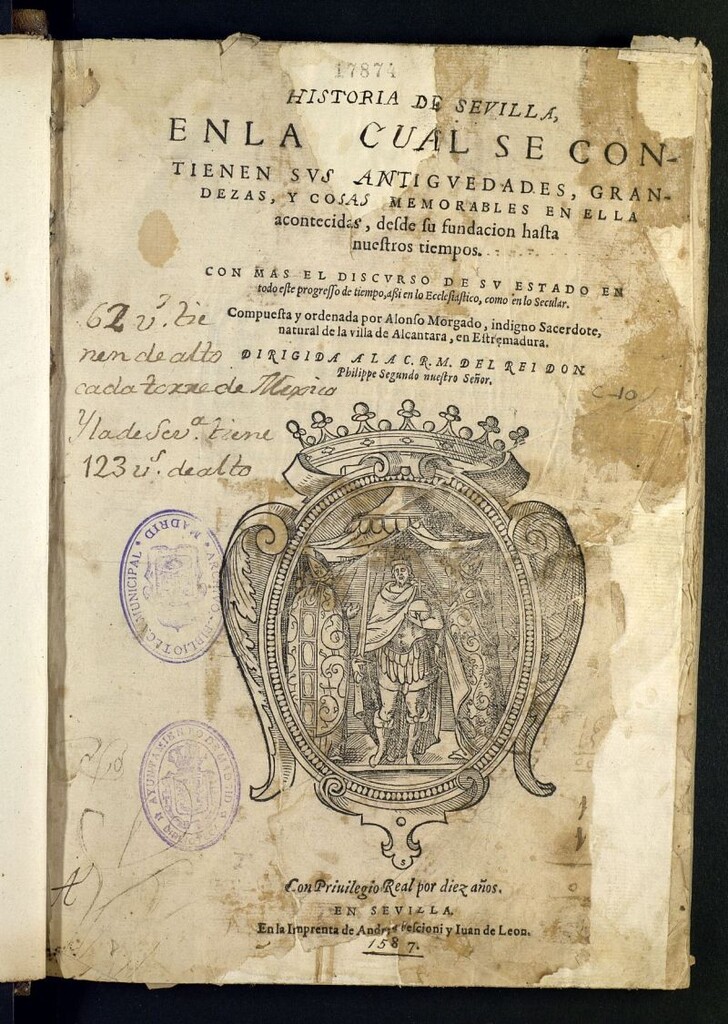 17874
HISTORIA DE SEVILLA,
EN LA CUAL SE CON-
TIENEN SVS ANTIGVEDADES, GRAN-
DEZAS, Y COSAS MEMORABLES EN ELLA
acontecidas, desde su fundacion hasta
nuestros tiempos.
CON MAS EL DISCVRSO DE SV ESTADO EN
todo este progresso de tiempo, assi en lo Ecclesiastico, como en lo Secular.
Compuesta y ordenada por Alonso Morgado, indigno Sacerdote,
natural de la villa de Alcantara, en Estremadura.
DIRIGIDA A LA C. R. M. DEL REI DON
Philippe Segundo nuestro Señor.
62 vs. tie
nen de alto
cada torre de Mexico
Y la de Seva. tiene
123 vs. de alto
C-10
BIBLIOTECA MUNICIPAL * MADRID *
AYUNTAMIENTO DE MADRID
Con Priuilegio Real por diez años.
EN SEVILLA.
En la Imprenta de Andrea Pescioni y Iuan de Leon.
1587.